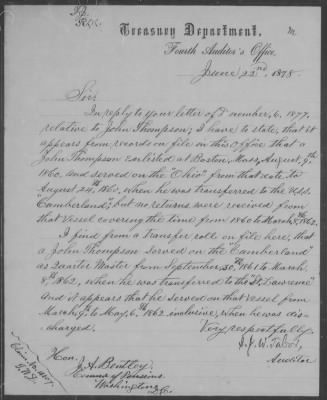 Treasury Department,
Fourth Auditor's Office,
June 22nd 1878.
Sir:
In reply to your letter of December, 6, 1877,
relative to John Thompson; I have to state, that it
appears from records on file in this Office that a
John Thompson enlisted at Boston, Mass, August, 9th
1860, and served on the "Ohio" from that date, to
August 24th 1860, when he was transferred to the U.S.S.
"Cumberland"; but no returns were received from
that Vessel covering the time from 1860 to March, 8th 1862.
I find from a transfer roll on file here, that
a John Thompson served on the "Cumberland"
as Quarter Master from September, 30th 1861 to March,
8th 1862, when he was transferred to the "St. Lawrence"
And it appears that he served on that Vessel from
March, 9th to May, 6th 1862 inclusive, when he was dis-
charged.
Very respectfully,
W. Tabor,
Auditor
Hon.
J. A. Bentley,
Comm'r of Pensions,
Washington
D.C.